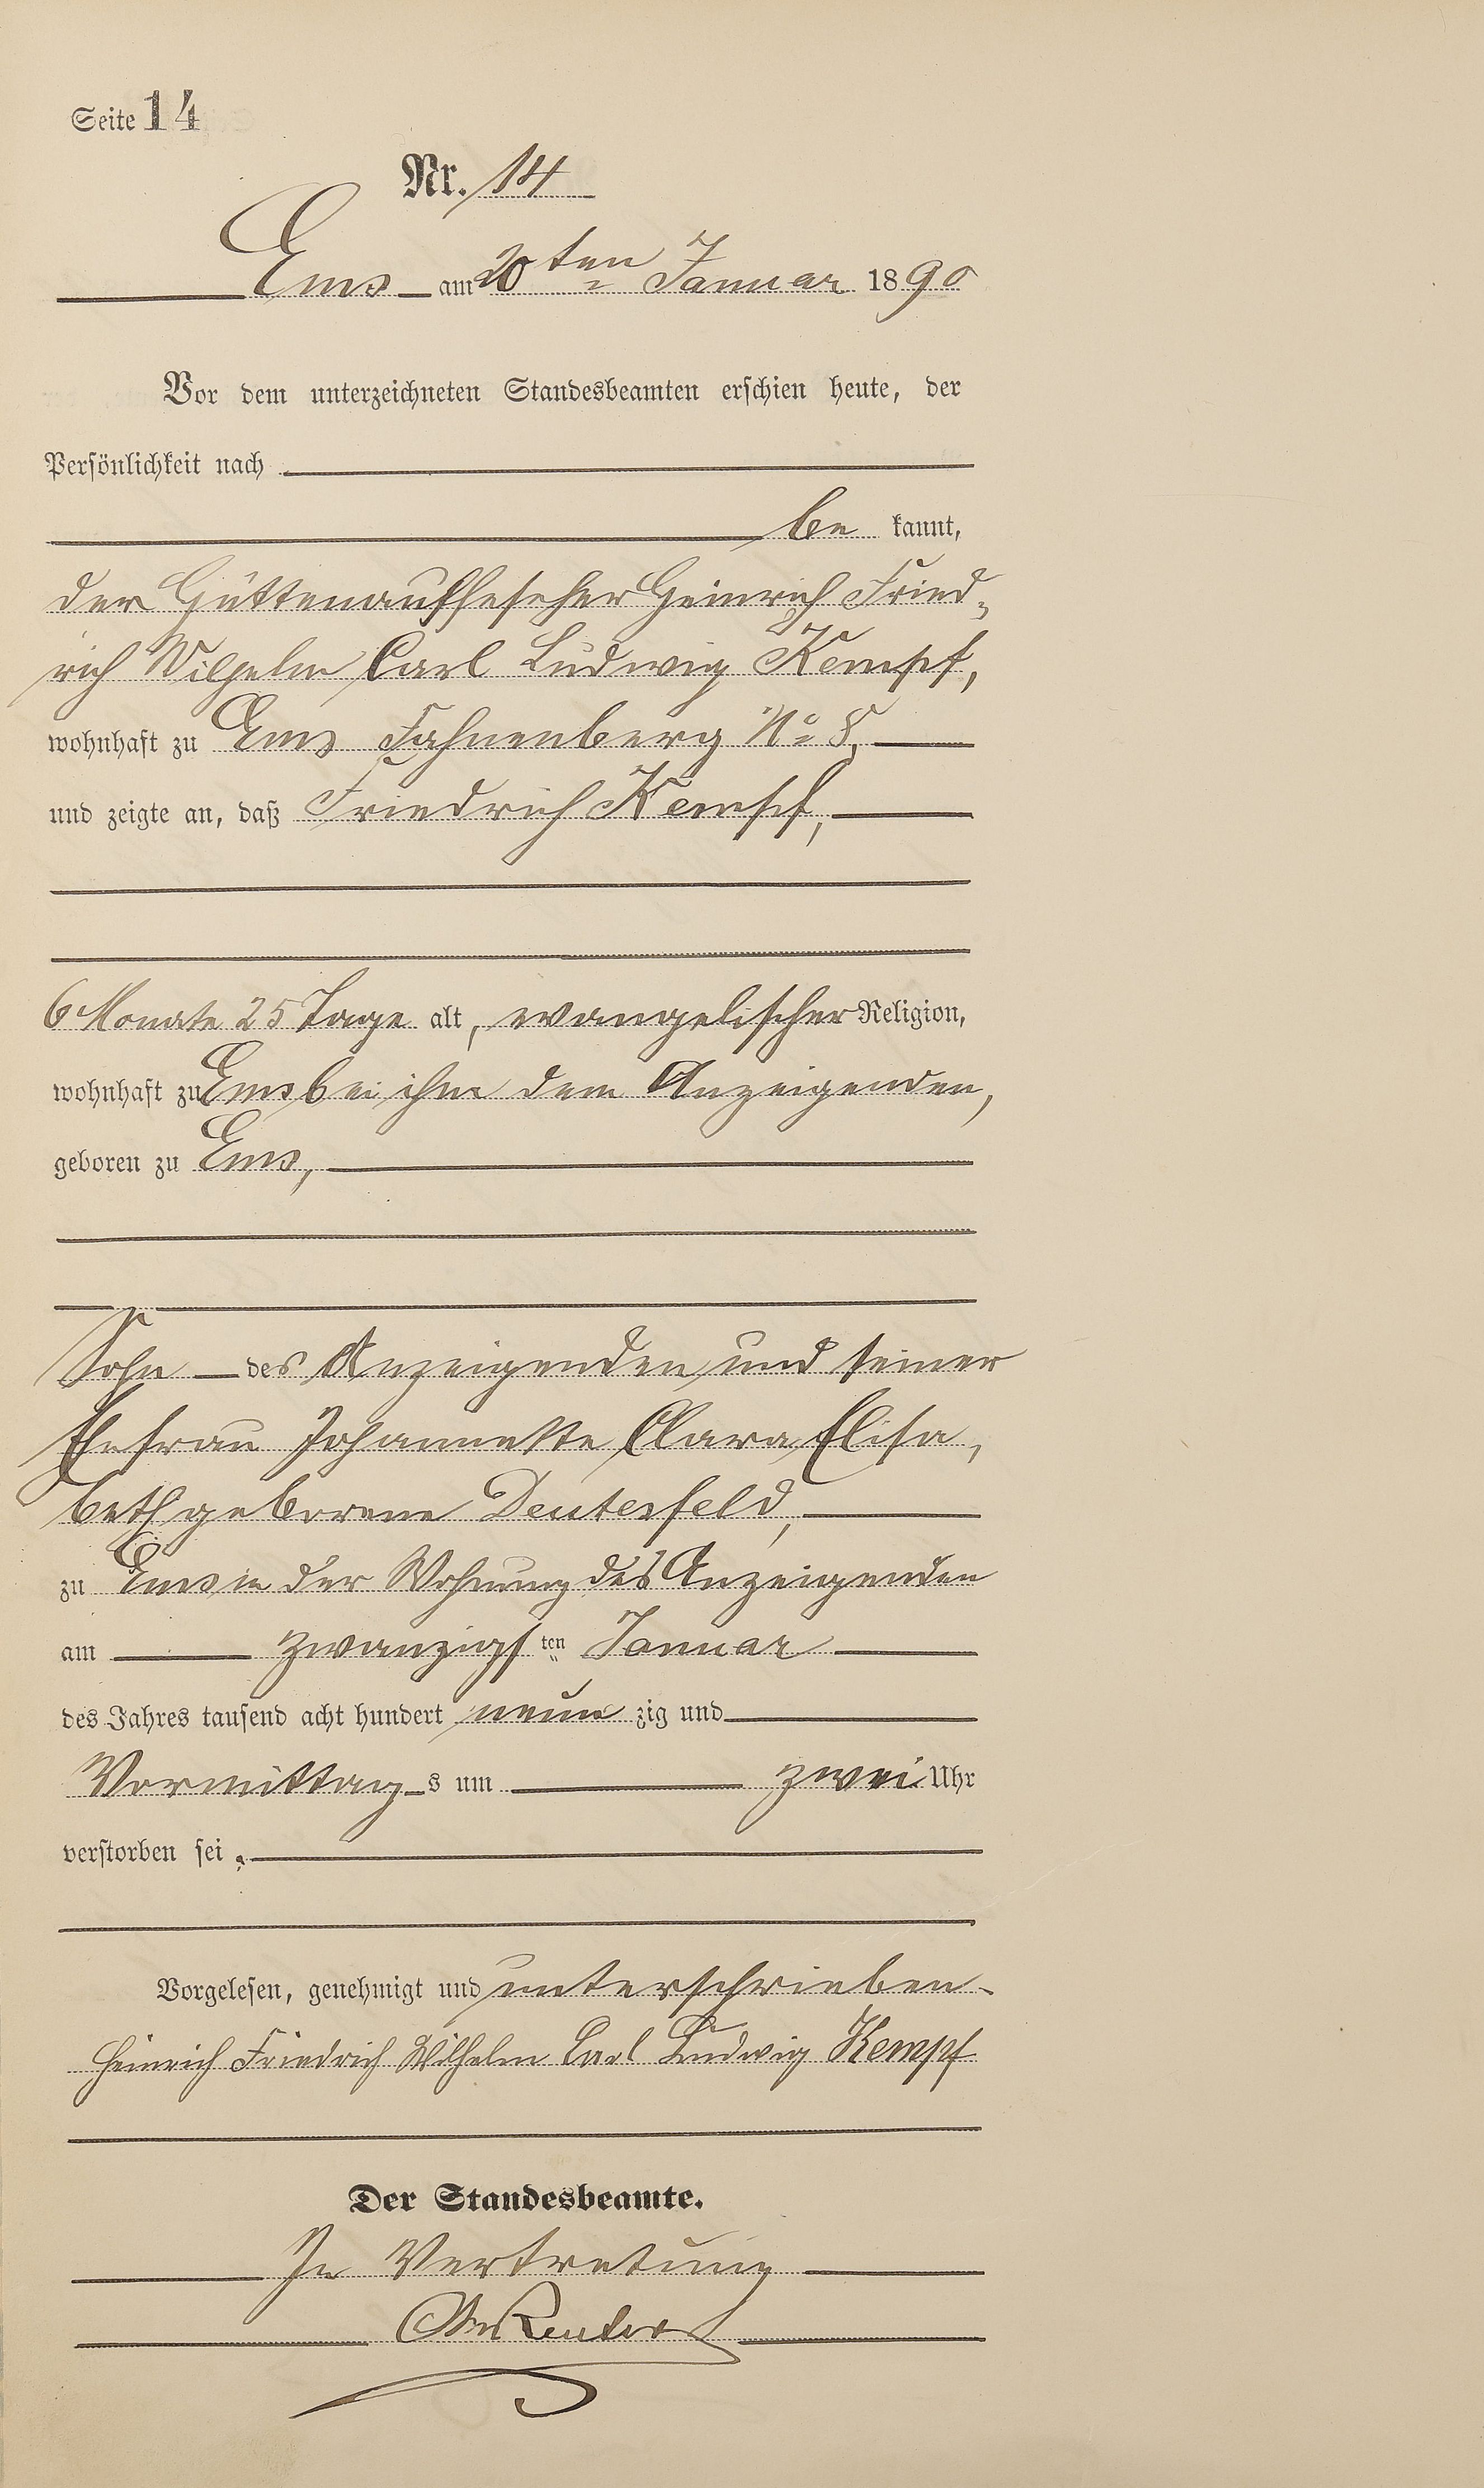 Seite 14
Nr. 14
Ems am 20ten Januar 1890
Vor dem unterzeichneten Standesbeamten erschien heute, der
Persönlichkeit nach
be kannt,
der Hüttenaufseher Heinrich Fried-
rich Wilhelm Carl Ludwig Kempf,
wohnhaft zu Ems Fahnenberg No 8,
und zeigte an, daß Friedrich Kempf,
6 Monate 25 Tage alt, evangelischer Religion,
wohnhaft zu Ems bei ihm dem Anzeigenden,
geboren zu Ems,
Sohn des Anzeigenden und seiner
Ehefrau Johannette Clara Elisa-
beth geborene Deutesfeld,
zu Ems in der Wohnung des Anzeigenden
am zwanzigsten Januar
des Jahres tausend acht hundert neunzig und
Vormittags um zwei Uhr
verstorben sei.
Vorgelesen, genehmigt und unterschrieben.
Heinrich Friedrich Wilhelm Carl Ludwig Kempf
Der Standesbeamte.
In Vertretung
Reuter